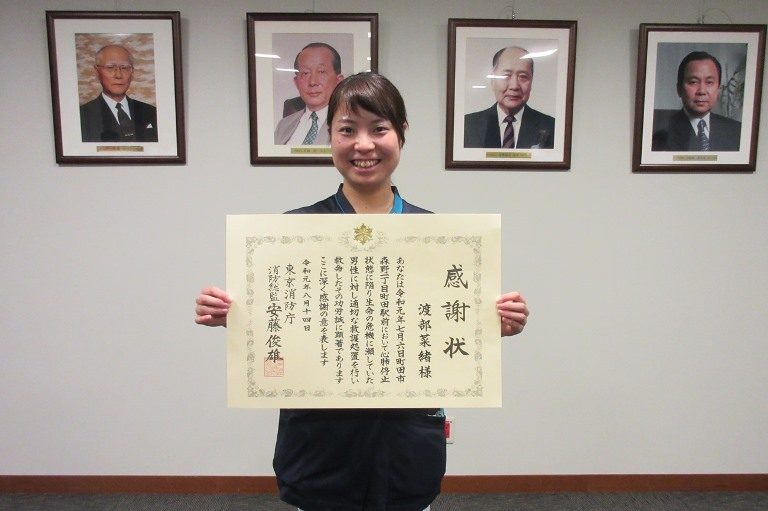 感謝状
渡部菜緒様
あなたは令和元年七月六日町田市
森野一丁目町田駅前において心肺停止
状態に陥り生命の危機に瀕していた
男性に対し適切な救護処置を行い
救命したその功労誠に顕著であります
ここに深く感謝の意を表します
令和元年八月十四日
東京消防庁
消防総監 安藤俊雄